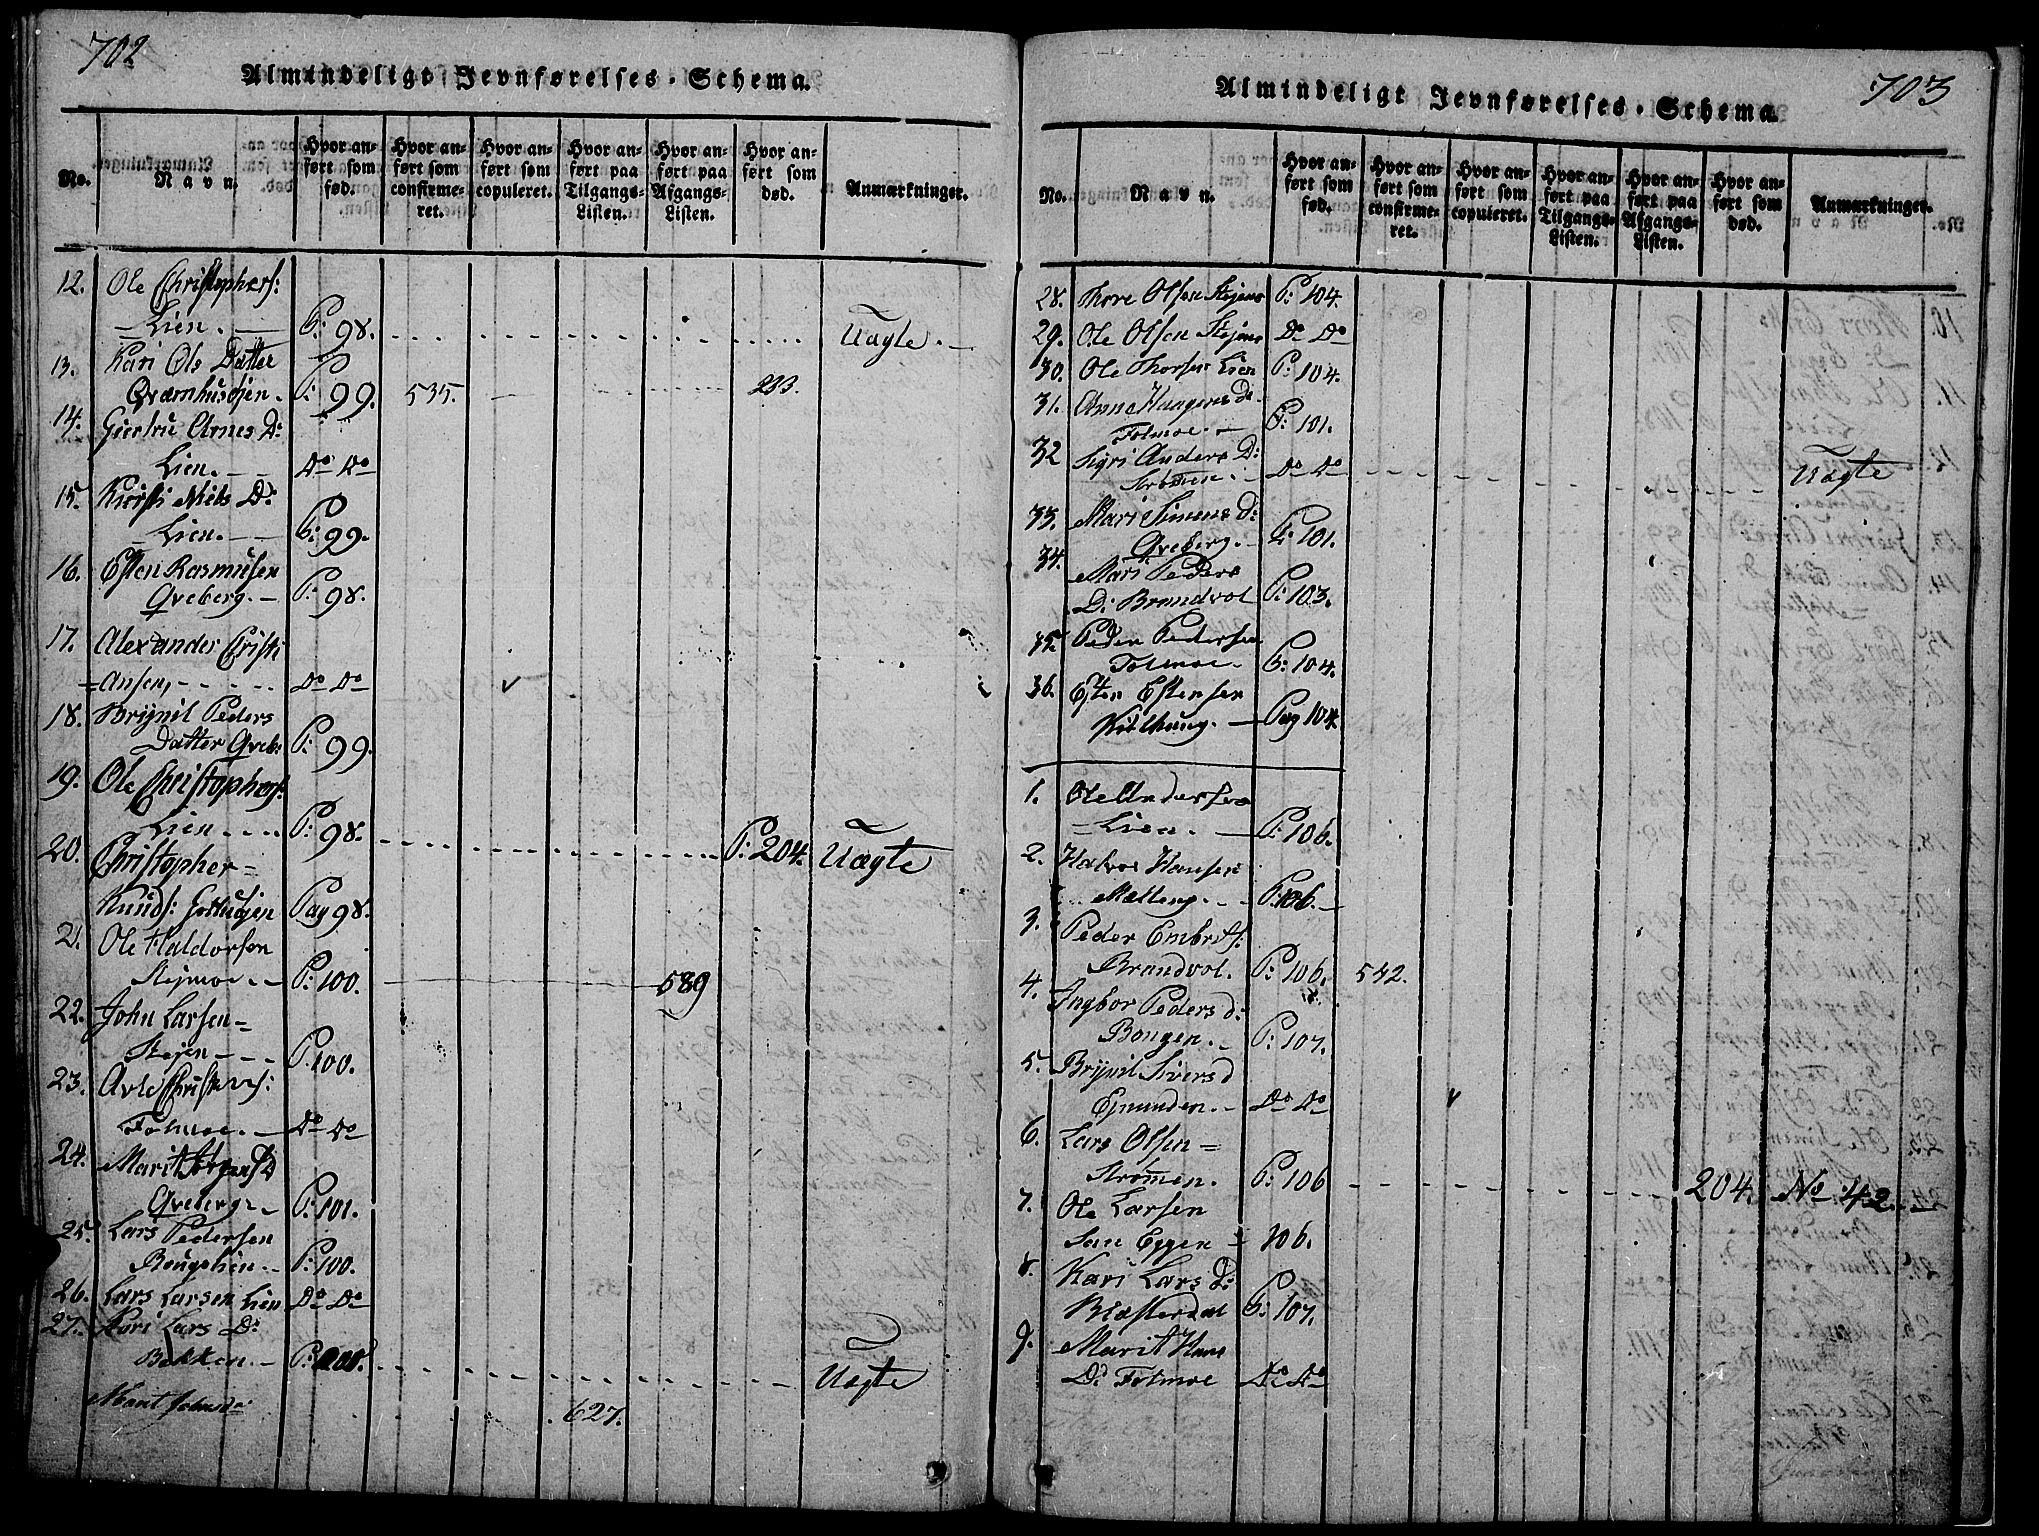 702
Almindeligt Jevnførelses-Schema.
No.
Navn.
Hvor anført som fød.
Hvor anført som confirmeret.
Hvor anført som copuleret.
Hvor anført paa Tilgangs-Listen.
Hvor anført paa Afgangs-Listen.
Hvor anført som død.
Anmærkninger.
12. Ole Christophers:
Lien. P: 98. Uægte.
13. Kari Ols Datter
P: 99. 535. 233.
14. Giertru Arnes D:
Lien. Do Do
15. Kiersti Niels D:
Lien. P: 99.
16. Esten Rasmusen
Qveberg. P: 98.
17. Alexander Christi
=Ansen, Do Do
18. Brynil Peders
Datter Qveb: P: 99.
19. Ole Christophers:
Lien. P: 98. P: 204. Uægte
20. Christopher=
Knuds: Pag 98.
21. Ole Haldorsen
Stejmoe. P: 100. 589
22. John Larsen=
Stejen P: 100.
23.
Folmoe. Do Do
24. Marit D
Qveberg. P: 101.
25. Lars Pedersen
P: 100.
26. Lars Larsen Lien Do Do
27. Kari Lars D:
Bakken. P: Uægte
627.
703
Almindeligt Jevnførelses-Schema.
No.
Navn.
Hvor anført som fød.
Hvor anført som confirmeret.
Hvor anført som copuleret.
Hvor anført paa Tilgangs-Listen.
Hvor anført paa Afgangs-Listen.
Hvor anført som død.
Anmærkninger.
28. Thore Olsen Stejens P: 104.
29. Ole Olsen Stejens Do Do
30. Ole Thorsen Lien P: 104.
31. Anne Haagens D:
Folmoe. P: 101.
32 Sigri Anders D:
Strømen. Do Do Uægte
33. Mari Simens d:
Qveberg. P: 101.
34. Mari Peders
D: Brandvol P: 103.
35. Peder Pedersen
Folmoe. P: 104.
36. Esten Estensen
Pag 104.
1. Ole Andersen
Lien. P: 106.
2. Halvor Hansen
P: 106.
3. Peder Embrets:
Brandvol. P: 106. 542.
4. Ingbor Peders d:
Bongen. P: 107.
5. Brynil Sivers d
Do Do
6. Lars Olsen=
Strømen. P: 106 204. No 42.
7. Ole Larsen
Eggen 106.
8. Kari Lars D:
P: 107.
9. Marit Hans
D: Folmoe Do Do